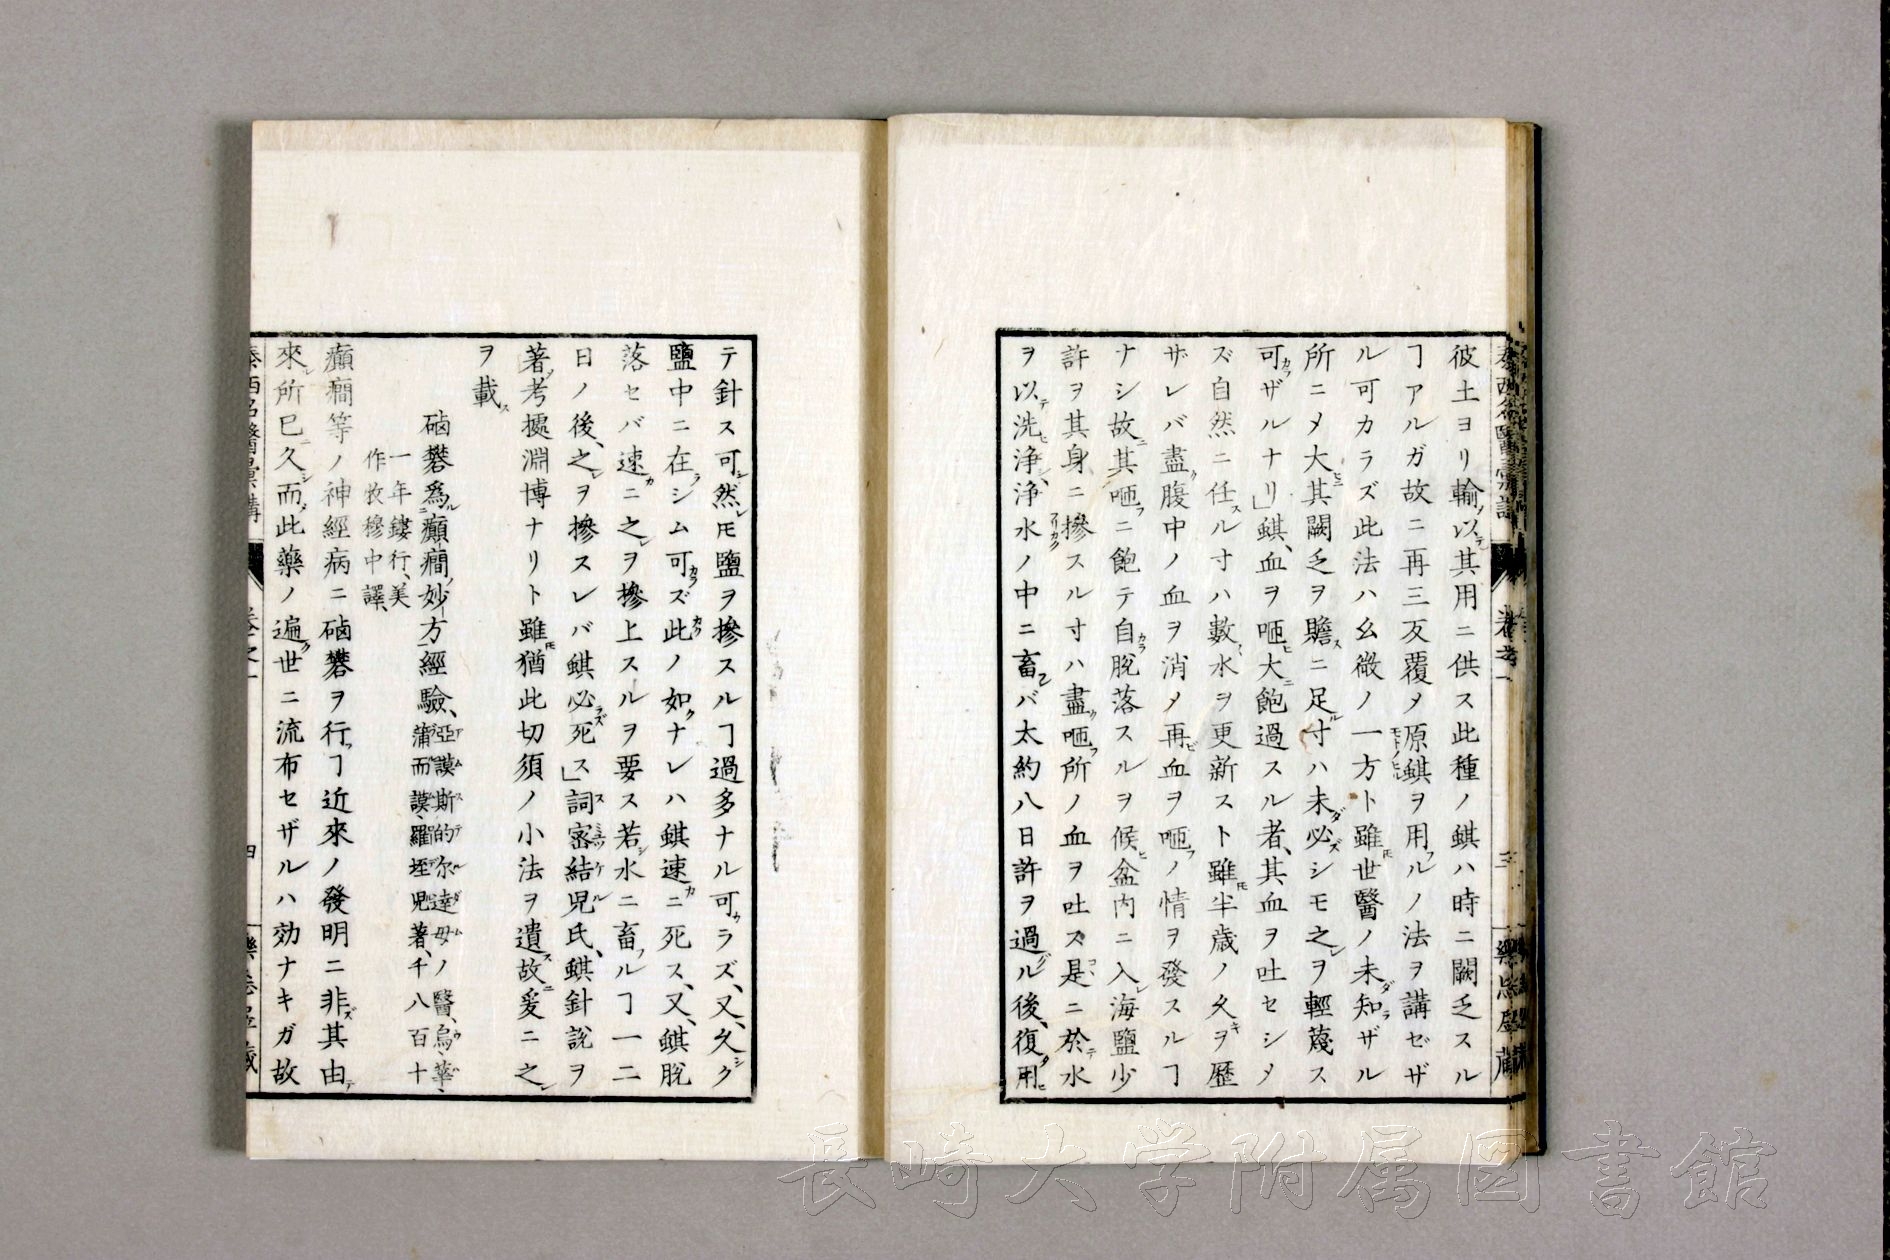 彼土ヨリ輸ノ以テ其用ニ供ス此種ノ蜞ハ時ニ闕乏スル
ヿアルガ故ニ再三反覆メ原蜞ヲ用フルノ法ヲ講ゼザ
ル可カラズ此法ハ幺微ノ一方ト雖モ世醫ノ未ダ知ラザル
所ニメ大ヒニ其闕乏ヲ贍スニ足ル寸ハ未ダ必ズシモ之レヲ輕蔑ス
可カラザルナリ」蜞、血ヲ咂ヒ大ニ飽過スル者、其血ヲ吐セシメ
ズ自然ニ任スル寸ハ數〻水ヲ更新スト雖モ半歳ノ久キヲ歷
ザレバ盡ク腹中ノ血ヲ消メ再ビ血ヲ咂フノ情ヲ發スルヿ
ナシ故ニ其咂フニ飽テ自カラ脫落スルヲ候ヒ盆內ニ入レ海鹽少
許ヲ其身ニ摻スル寸ハ盡ク咂フ所ノ血ヲ吐ス是コヽニ於テ水
ヲ以テ洗ヒ淨シ、淨水ノ中ニ畜ヘバ太約八日許ヲ過グル後、復タ用ヒ
テ針ス可シ然レ𪜈鹽ヲ摻スルヿ過多ナル可ラズ、又、久シク
鹽中ニ在ラシム可カラズ此カクノ如クナレハ蜞速カニ死ス、又、蜞脫
落セバ速カニ之レヲ摻上スルヲ要ス若シ水ニ畜フルヿ一二
日ノ後、之レヲ摻スレバ蜞必ラズ死ス」詞密結兒氏、蜞針說ヲ
著ノ考據淵博ナリト雖モ猶此切須ノ小法ヲ遺ス故ニ爰ニ之レ
ヲ載ス
硇礬爲ルニ癲癇ノ妙方一經驗、亞謨斯的尔達母ノ醫、烏華、
蒲而謨、羅垤兒著、千八百十
一年鏤行、美
作牧穆中譯、
癲癇等ノ神經病ニ硇礬ヲ行フヿ近來ノ發明ニ非ズ其由テ
來レ所已ニ久シ而ノ此藥ノ遍ク世ニ流布セザルハ効ナキガ故
泰西名醫彙講
卷之一
四